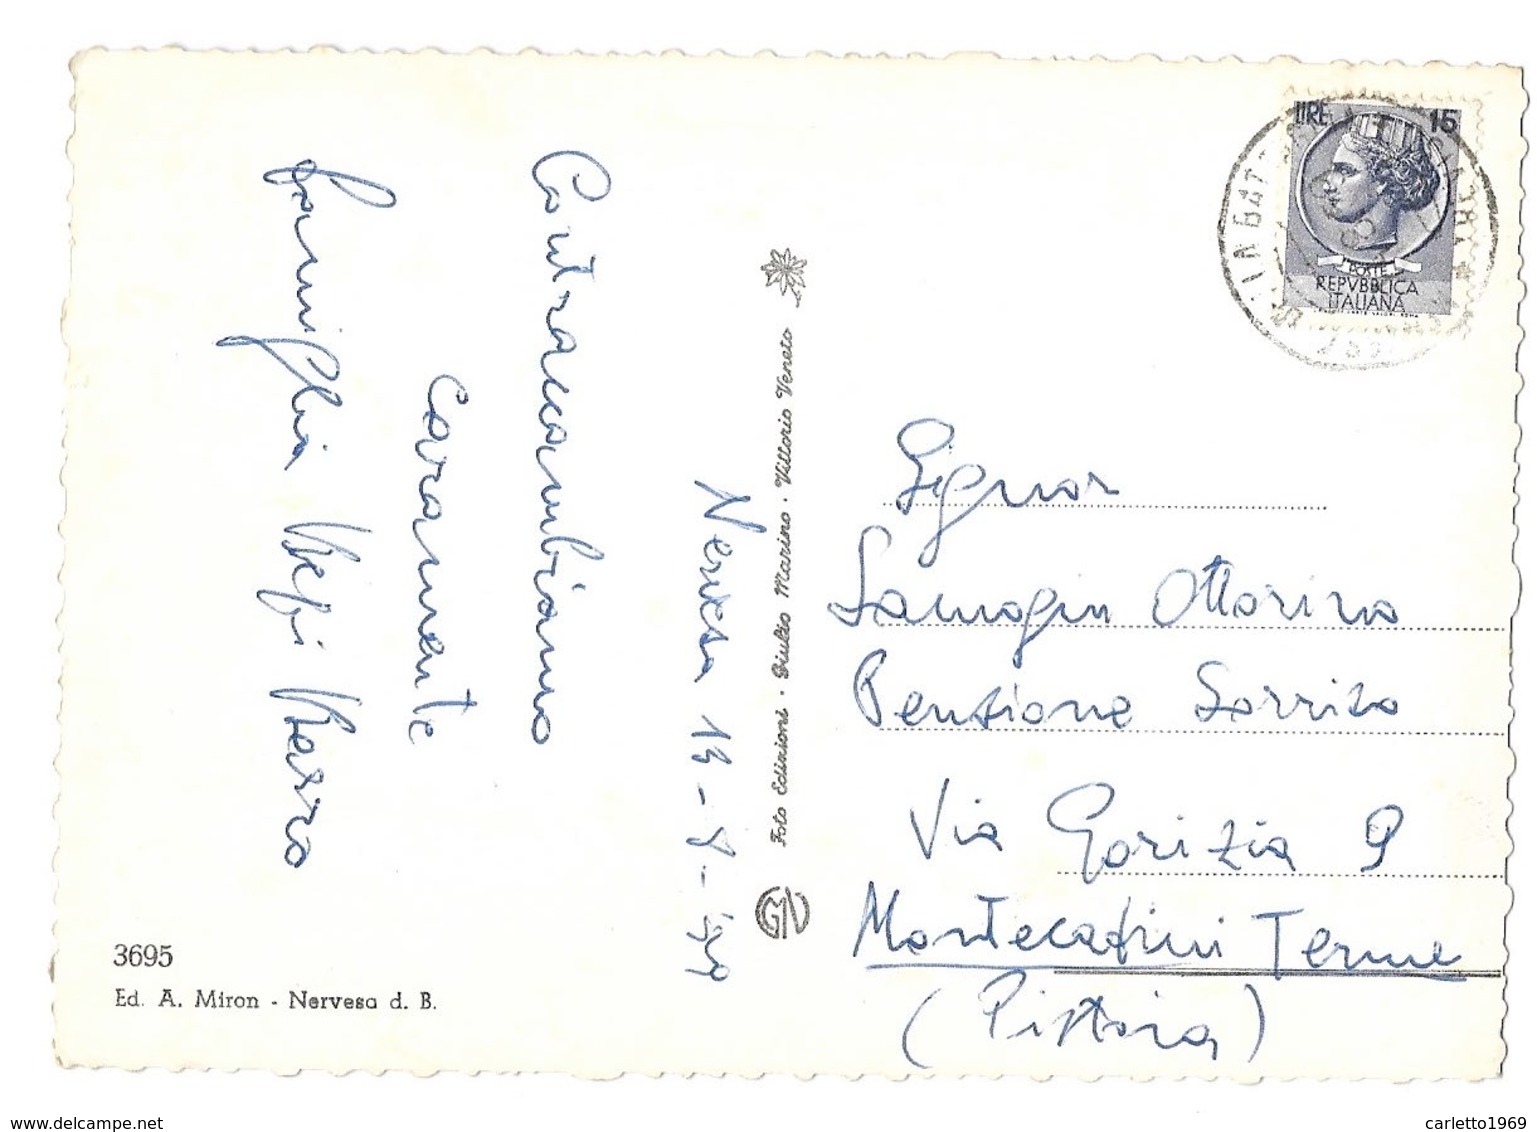 Contraccambiamo
caramente
famiglia
Nervesa 19-8-'59
3695
Ed. A. Miron - Nervesa d. B.
Foto Edizioni - Giulio Marino - Vittorio Veneto
LIRE 15
POSTE
REPVBBLICA
ITALIANA
Signor
Samogin Ottorino
Pensione Sorriso
Via Gorizia 9
Montecatini Terme
(Pistoia)
www.delcampe.net
carletto1969